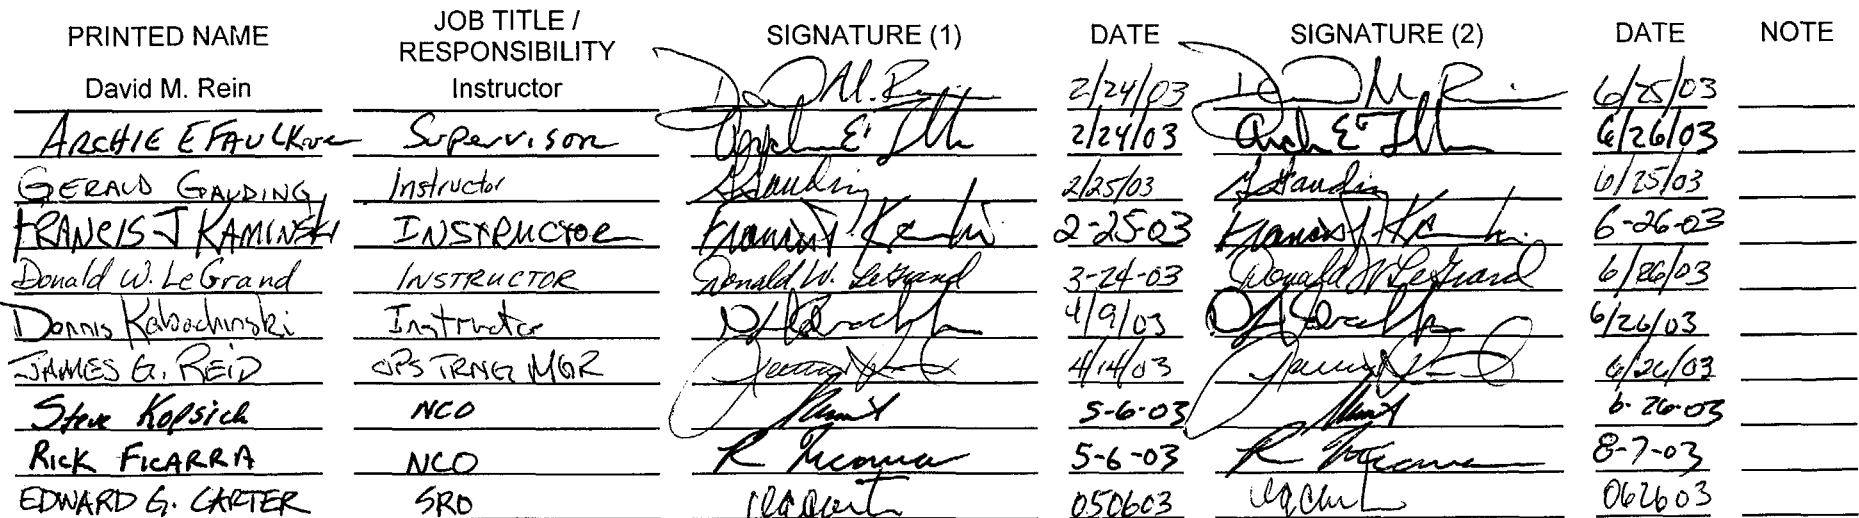 PRINTED NAME JOB TITLE / RESPONSIBILITY SIGNATURE (1) DATE SIGNATURE (2) DATE NOTE
David M. Rein Instructor David M. Rein 2/24/03 David M. Rein 6/25/03
ARCHIE E FAULKNER Supervisor 2/24/03 6/26/03
GERALD GAUDING Instructor G Gauding 2/25/03 G Gauding 6/25/03
FRANCIS J KAMINSKI INSTRUCTOR Francis J 2-25-03 Francis J 6-26-03
Donald W. LeGrand INSTRUCTOR Donald W. LeGrand 3-24-03 Donald W LeGrand 6/26/03
Dennis Kabachinski Instructor 4/9/03 6/26/03
JAMES G. REID OPS TRNG MGR 4/14/03 6/26/03
Steve Kopsick NCO 5-6-03 6-26-03
RICK FICARRA NCO R 5-6-03 R 8-7-03
EDWARD G. CARTER SRO 050603 062603